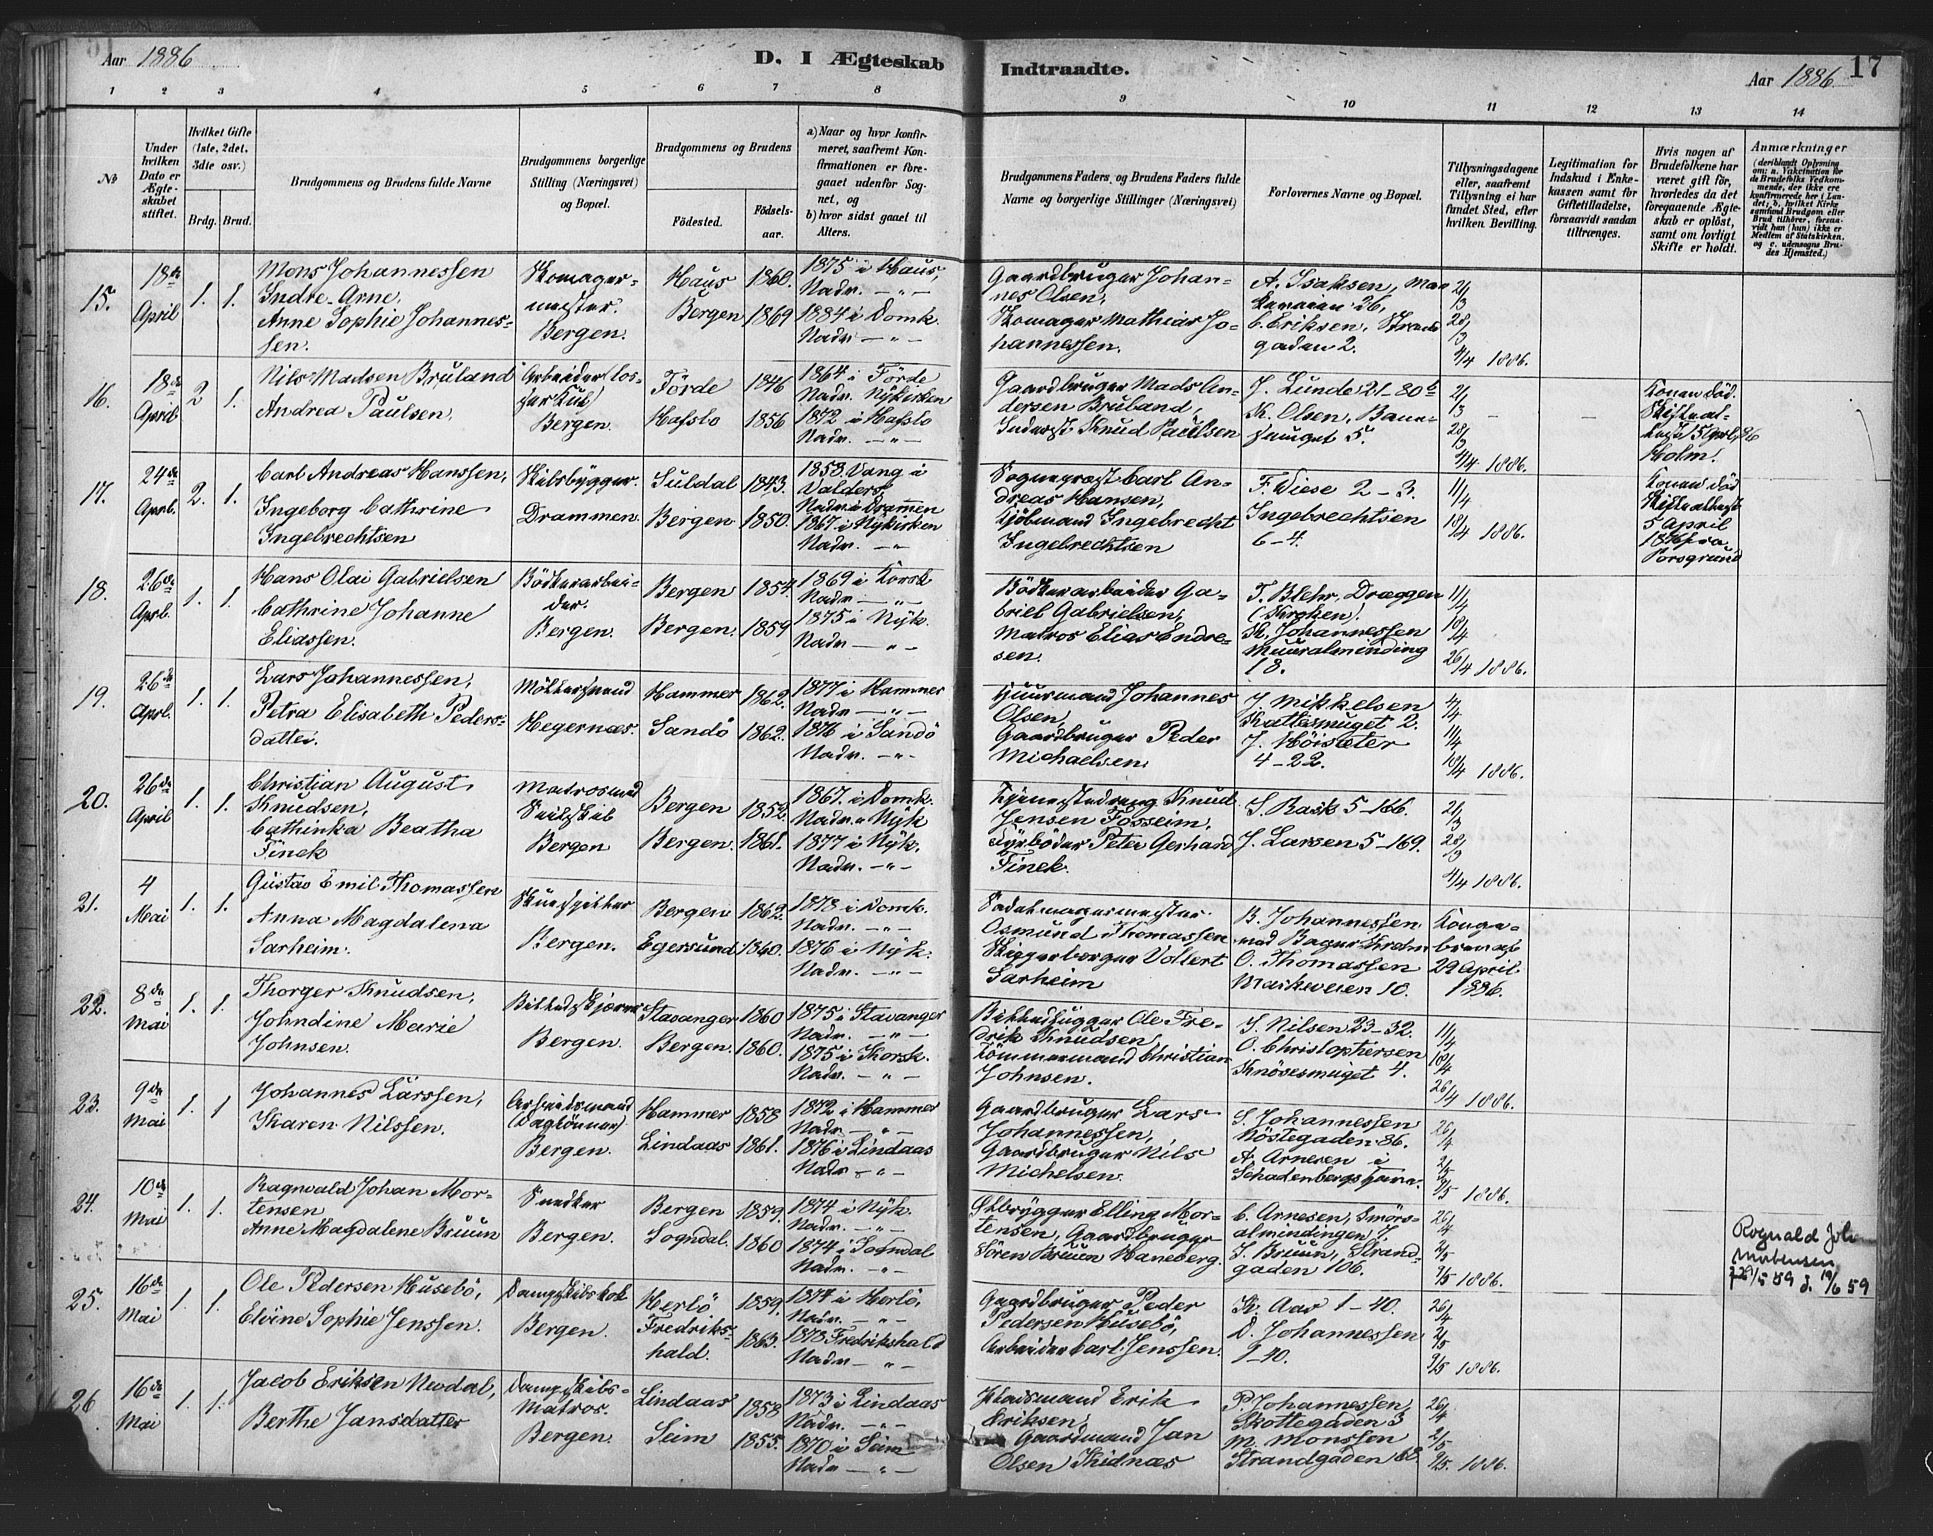 Aar 1886
D. I Ægteskab
Indtraadte.
Aar 1886.
17
1 2 3 4 5 6 7 8 9 10 11 12 13 14
No
Under hvilken Dato er Ægteskabet stiftet.
Hvilket Gifte (1ste, 2det, 3die osv.)
Brdg. Brud.
Brudgommens og Brudens fulde Navne
Brudgommens borgerlige Stilling (Næringsvei) og Bopæl.
Brudgommens og Brudens
Fødested.
Fødselsaar.
a) Naar og hvor konfirmeret, saafremt Konfirmationen er foregaaet udenfor Sognet, og
b) hvor sidst gaaet til Alters.
Brudgommens Faders, og Brudens Faders fulde Navne og borgerlige Stillinger (Næringsvei)
Forlovernes Navne og Bopæl.
Tillysningsdagene eller, saafremt Tillysning ei har fundet Sted, efter hvilken Bevilling.
Legitimation for Indskud i Enkekassen samt for Giftetilladelse, forsaavidt saadan tiltrænges.
Hvis nogen af Brudefolkene har været gift før, hvorledes da det foregaaende Ægteskab er opløst, samt om lovligt Skifte er holdt.
Anmærkninger
15. 18de April 1. 1.
Mons Johannessen
Indre-Arne.
Anne Sophie Johannessen.
Skomagermester.
Bergen.
Haus 1860.
Bergen 1869
1875 i Haus,
Nadv. — „ —
1884 i Domk.
Nadv. — „ —
Gaardbruger Johannes Olsen,
Skomager Mathias Johannessen.
A. Isaksen,
C. Eriksen, Strandgaden 2.
21/3
28/3
4/4 1886.
16. 18de April 2 1.
Nils Madsen Bruland
Andrea Paulsen,
Bergen.
Förde 1846
Hafslo 1856
1864 i Förde
Nadv. Nykirken
1872 i Hafslo
Nadv. — „ —
Gaardbruger Mads Andersen Bruland,
Inderst Knud Paulsen
J. Lunde 21-80b
K. Olsen,
21/3
28/3
4/4 1886.
Konen död.
17. 24de April. 2. 1.
Carl Andreas Hanssen,
Ingeborg Cathrine
Ingebrechtsen
Skibsbygger.
Drammen.
Suldal 1843.
Bergen 1850.
1858. Vang i
Valders,
Nadv. i Drammen
1867. i Nykirken
Nadv. — „ —
Sogneprest Carl Andreas Hansen,
Kjöbmand Ingebrecht
Ingebrechtsen
F. Wiese 2-3.
Ingebrechtsen
6-4.
11/4
18/4 1886.
Konen död
5 April
1886 fra
Porsgrund
18. 26de April. 1. 1.
Hans Olai Gabrielsen
Cathrine Johanne
Eliassen.
Bödkerarbeider.
Bergen.
Bergen 1854.
Bergen. 1859
1869 i Korsk
Nadv. — „ —
1875 i Nyk.
Nadv — „ —
Bödkerarbeider Gabriel Gabrielsen,
Matros Elias Endresen.
F. Blehr, Dræggen
K. Johannessen
Muuralminding
18.
11/4
18/4
26/4 1886.
19. 26de April. 1. 1.
Lars Johannessen,
Petra Elisabeth Pedersdatter.
Hegernæs.
Hammer 1862.
Sandö 1862.
1877 i Hammer
Nadv. — „ —
1876 i Sandö
Nadv. — „ —
Huusmand Johannes
Olsen,
Gaardbruger Peder
Michaelsen
J. Mikkelsen
Kattesmuget 2.
J. Höisæter
4-22.
4/4
11/4
18/4 1886.
20. 26de April 1. 1.
Christian August
Knudsen,
Cathinka Beatha
Finek
Matros med
Seilskib
Bergen
Bergen 1852.
Bergen. 1861.
1867. i Domk.
Nadv. i Nyk
1877 i Nyk.
Nadv. — „ —
Knud
Jensen Fosseim,
Fyrböder Peter Gerhard
Finek.
S. Rask 5-166.
J. Larsen 5-169.
21/3
28/3
4/4 1886.
21. 4 Mai 1. 1.
Gustav Emil Thomassen
Anna Magdalena
Sarheim.
Skuespiller
Bergen.
Bergen 1862.
Egersund 1860.
1878 i Domk.
Nadv. — „ —
1876 i Nyk.
Nadv. — „ —
Sadelmagermester
Osmund Thomassen
Skipperborger Vollert
Sarheim
B. Johannessen
O. Thomassen
Markeveien 10.
Kongebrev af
29 April
1886.
22. 8de Mai 1. 1.
Thorger Knudsen,
Johndine Marie
Johnsen.
Billedskjærer
Bergen.
Stavanger 1860
Bergen. 1860.
1875 i Stavanger
Nadv. — „ —
1875 i Korsk.
Nadv. — „ —
Billedhugger Ole Fredrik Knudsen,
Tömmermand Christian
Johnsen.
S. Nilsen 23-32.
O. Christophersen
Knösesmuget 4.
11/4
18/4
26/4 1886.
23. 9de Mai 1. 1
Johannes Larssen,
Karen Nilssen.
Arbeidsmand
(Daglönner)
Bergen.
Hammer 1858
Lindaas 1861.
1872 i Hammer
Nadv. — „ —
1876 i Lindaas
Nadv — „ —
Gaardbruger Lars
Johannessen,
Gaardbruger Nils
Michelsen.
S. Johannessen
Nöstegaden 86.
A. Arnesen i
26/4
2/5
9/5 1886.
24. 10de Mai 1. 1.
Ragnvald Johan Mortensen
Anne Magdalene Bruun
Snedker
Bergen.
Bergen 1859.
Sogndal. 1860
1874 i Nyk.
Nadv. — „ —
1874 i Sogndal
Nadv. — „ —
Ölbrygger Elling Mortensen, Gaardbruger
Sören Bruun Haneberg.
C. Arnesen, Smörsalmindingen 7,
S. Bruun, Strandgaden 106.
26/4
2/5
9/5 1886.
Rognald Joh
Mortensen
19/6 59
25. 16de Mai 1. 1.
Ole Pedersen Husebö,
Elvine Sophie Jenssen.
Dampskibskok
Bergen.
Herlö 1859.
Fredrikshald. 1863.
1874 i Herlö,
Nadv. — „ —
1878 Fredrikshald
Nadv — „ —
Gaardbruger Peder
Pedersen Husebö,
Arbeider Carl Jenssen.
K. Aar 1-40.
D. Johannessen
9-40.
26/4
2/5
9/5 1886.
26 16de Mai 1. 1.
Jacob Eriksen Nevdal,
Berthe Jansdatter
Dampskibs-
Matros.
Bergen.
Lindaas 1858
Seim 1855.
1873 i Lindaas
Nadv. — „ —
1870 i Seim
Nadv — „ —
Pladsmand Erik
Eriksen,
Gaardmand Jan
Olsen Kidnæs
P. Johannessen,
Skottegaden 3
M. Monssen
Strandgaden 68.
26/4
2/5
9/5. 1886.